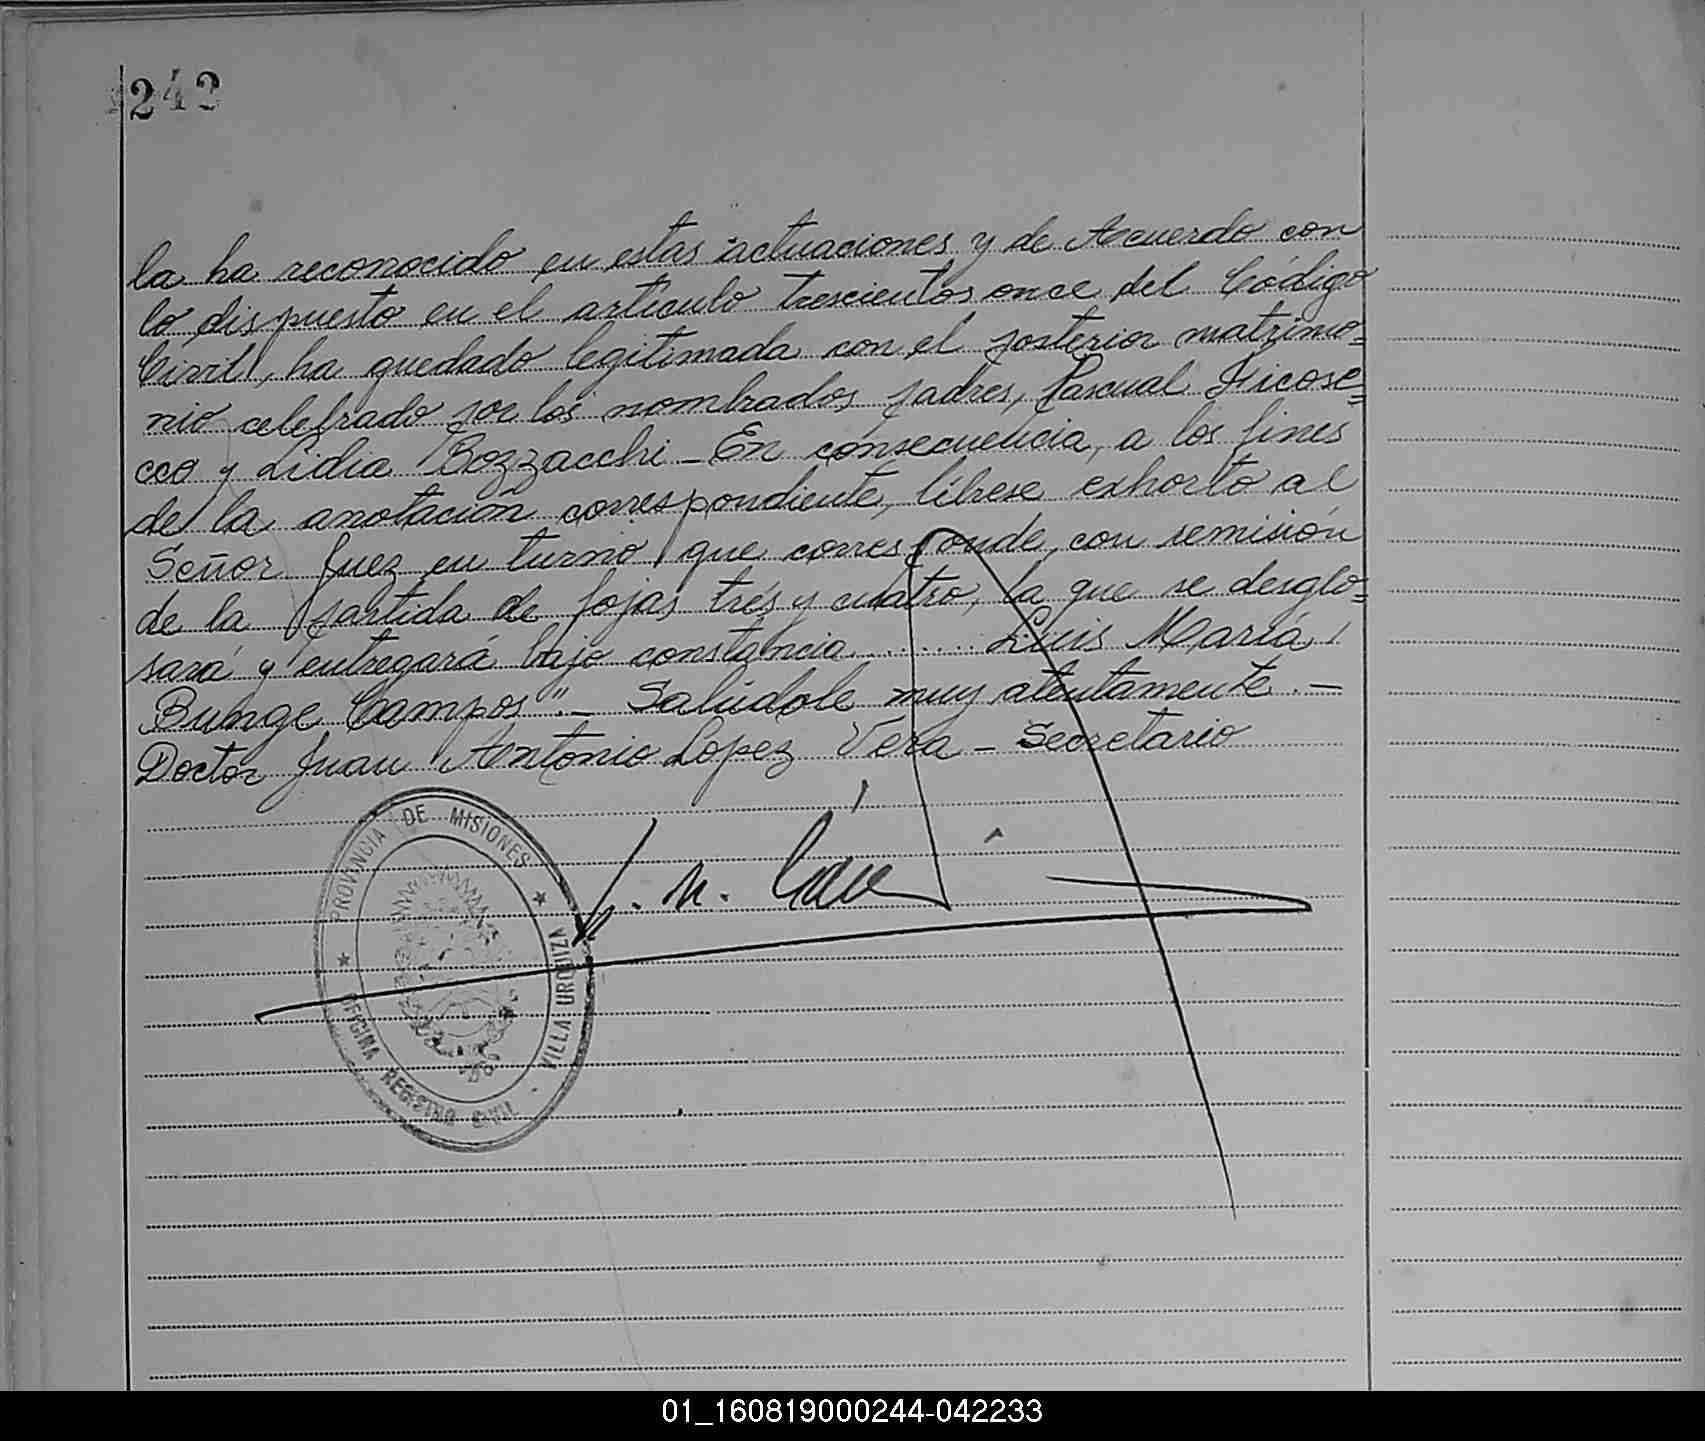 242
la ha reconocido en estas actuaciones y de Acuerdo con
lo dispuesto en el artículo trescientos once del Código
Civil, ha quedado legitimada con el posterior matrimo=
nio celebrado por los nombrados padres, Pascual Ficose=
cco y Lidia Bozzacchi – En consecuencia, a los fines
de la anotación correspondiente, líbrese exhorto al
Señor Juez en turno que corresponde, con remisión
de la partida de fojas trés y cuatro, la que se desglo=
sará y entregará bajo constancia........ Luis María
Bunge Campos".– Salúdole muy atentamente.–
Doctor Juan Antonio Lopez Vera – Secretario
PROVINCIA DE MISIONES
OFICINA REGISTRO CIVIL - VILLA URQUIZA
01_160819000244-042233